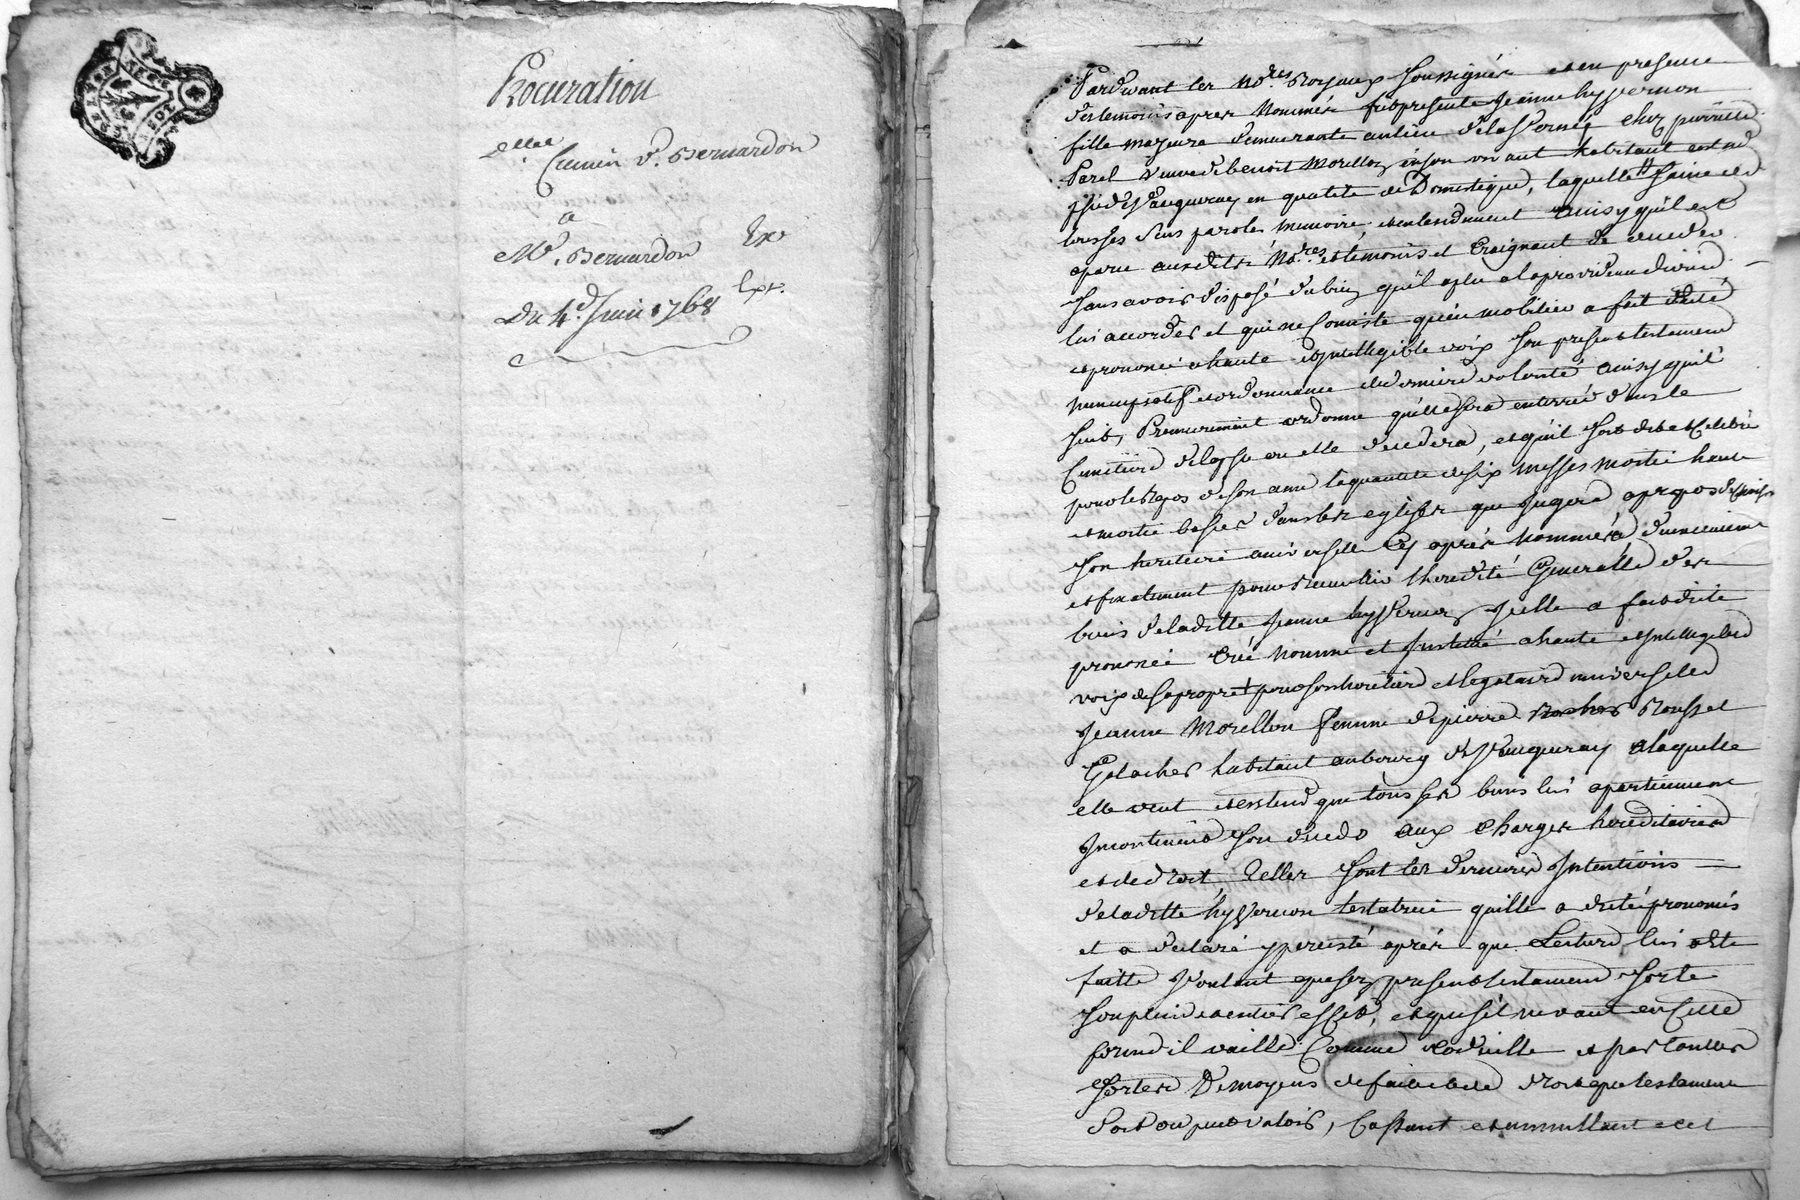 Procuration
delle
Cumin ve. Bernardon
a
Mr. Bernardon Exe
Du 4e. Juin 1768 Exp.
Pardevant les Nores. Royaux soussignés et en presence
des temoins apres nommés fut presente Jeanne hyvernon
fille majeure demeurante au lieu de la chez pierrette
Parel veuve de benoit Morellon, en son vivant habitant
de Vaugneray en qualité de Domestique, laquelle saine de
ses sens parole, memoire, et entendement ainsy qu'il est
aparu auxdits Nores. et temoins et Craignant de deceder
sans avoir disposé du bien qu'il a plu a la providence divine
lui accorder et qui ne Consiste qu'en mobilier a fait dicté
et prononcé a haute et intelligible voix son present testament
nuncupatif et ordonnance de derniere volonté ainsy qu'il
suit, Premierement ordonne qu'elle sera enterrée dans le
Cimetiere de la psse ou elle decedera, et qu'il soit dit et Celebré
pour le Repos de son ame la quantité de six messes moitié haute
et moitié basses dans les eglises que jugera apropos de choisir
son heritiere universelle Cy aprés nommée
et finalement pour l'heredité Generalle des
biens de laditte Jeanne hyvernon, Jcelle a fait dicté
prononcé Crée nommé et Jnstitué a haute et Jntelligible
voix de sa propre + pour son heritiere et legataire universelle
Jeanne Morellon femme de pierre Roussel
Galocher habitant au bourg de Vaugneray a laquelle
elle veut et entend que tous ses biens lui apartiennent
Jncontinent son deceds aux Charges hereditaires
et de droit, Telles sont les dernieres Jntentions
de laditte hyvernon testatrice quelle a dicté prononcés
et a declaré y persisté aprés que Lecture lui a eté
faitte Voulant que son present testament sorte
son plein et entier effet, et que s'il ne vaut en cette
forme il vaille Comme Codicille et par toutes
sortes De moyens de faire que de droit que testament
doit ou peut valoir, Cassant et annullant